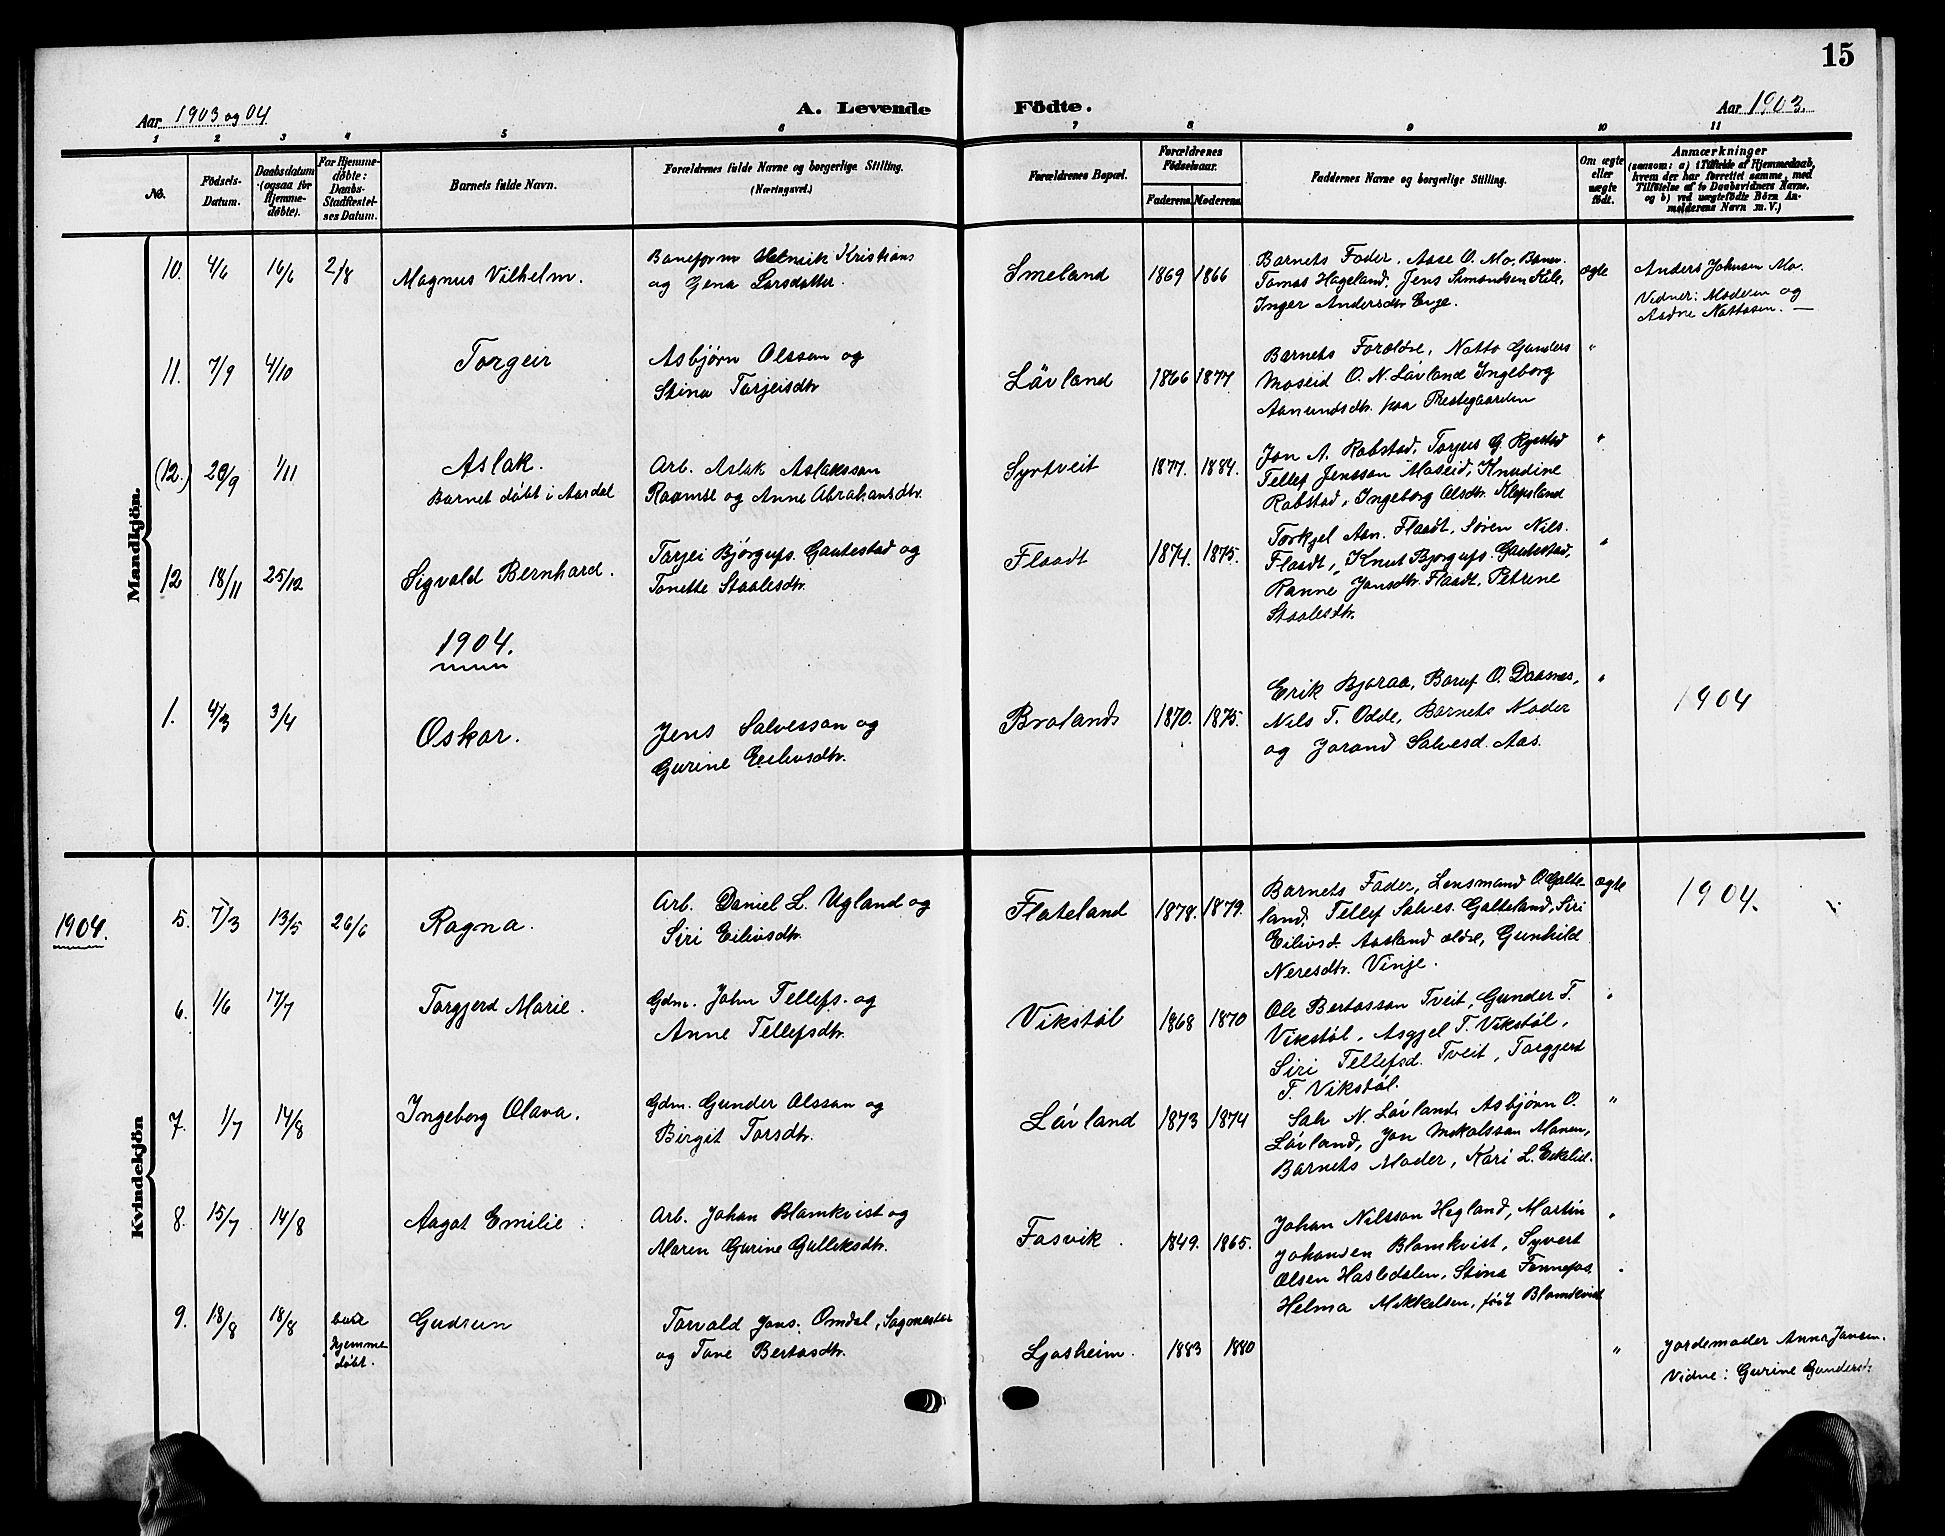 15
Aar 1903 og 04
A. Levende Födte.
Aar 1903.
1 2 3 4 5 6 7 8 9 10 11
No.
Födsels-Datum.
Daabsdatum (ogsaa för Hjemme-döbte).
For Hjemme-döbte: Daabs-Stadfæstel-ses Datum.
Barnets fulde Navn.
Forældrenes fulde Navne og borgerlige Stilling.
(Næringsvei.)
Forældrenes Bopæl.
Forældrenes Födselsaar.
Faderens. Moderens.
Faddernes Navne og borgerlige Stilling.
Om ægte eller uægte födt.
Anmærkninger
(saasom: a) i Tilfælde af Hjemmedaab,
hvem der har forrettet samme, med
Tilföielse af to Daabsvidners Navne,
og b) ved uægtefödte Börn An-
melderens Navn m. V.)
Mandkjön.
10. 4/6 16/6 2/8 Magnus Vilhelm.
Baneform Henrik Kristians
og Gena Larsdatter.
Smeland 1869 1866
Barnets Fader, Aase O. Mo,
Tomas Hageland, Jens Simondsen Kile,
Inger Andersdtr. Evje.
ægte
Anders Johnsen Mo.
Vidner: Moderen og
Aadne Nottosen.
11. 7/9 4/10 Torgeir
Asbjørn Olsson og
Stina Tarjeisdtr.
Lövland 1866 1877
Barnets Forældre, Notto Gunders
Moseid O. N. Lövland Ingeborg
Aanundsdtr. paa Prestegaarden
"
(12.) 20/9 1/11 Aslak.
Barnet døbt i Aardal
Arb. Aslak Aslaksson
Raamse og Anne Abrahansdtr.
Syrtveit 1877. 1884.
Jon A. Rabstad, Torjus G. Rystad
Tellef Jensson Moseid, Knudine
Rabstad, Ingeborg Olsdtr. Klepsland
"
12 18/11 25/12 Sigvald Bernhard.
Tarjei Bjørgufs. Gautestad og
Tonette Staalesdtr.
Flaadt 1874. 1875.
Torkjel Aan. Flaadt, Søren Nils.
Flaadt, Knut Bjorgufs. Gautestad,
Ranne Jonsdtr. Flaadt, Petrine
Staalesdtr.
"
1904.
1. 4/3 3/4 Oskar.
Jens Salvesson og
Gurine Eilivsdtr.
Broland 1870. 1875.
Erik Bjoraa, O. Daasnes,
Nils T. Odde, Barnets Moder
og Jorand Salvesd. Aas.
"
1904
1904.
Kvindekjön
5. 7/3 13/5 26/6 Ragna.
Arb. Daniel L. Ugland og
Siri Eilivsdtr.
Flateland 1878. 1879.
Barnets Fader, Lensmand O. Galte-
land, Tellef Salves. Galteland, Siri
Eilivsd. Aasland ældre, Gunhild
Neresdtr. Vinje.
ægte
1904.
6. 1/6 17/7 Torgjerd Marie.
Gdm. John Tellefs. og
Anne Tellefsdtr.
Vikstöl 1868 1870
Ole Bertosson Tveit, Gunder T.
Vikstöl, Asgjel T. Vikstöl,
Siri Tellefsd. Tveit, Torgjerd
T. Vikstöl.
"
7. 1/7 14/8 Ingeborg Olava.
Gdm. Gunder Olsson og
Birgit Torsdtr.
Lövland 1873 1874
N. Lövland, Asbjørn O.
Lövland, Jon
Barnets Moder, Kari L. Eikelid.
"
8. 15/7 14/8 Aagot Emilie.
Arb. Johan Blomkvist og
Maren Gurine Gulleksdtr.
Fosvik. 1849. 1865.
Johan Nilsson Hegland, Martin
Johansen Blomkvist, Syvert
Olsen Hasledalen, Stina Fennefos,
Helma Mikkelsen, født Blomkvist
"
9. 18/8 18/8 hjemme døbt. Gudrun
Torvald Jons. Omdal, Sagmester
og Tone Bertosdtr.
Ljosheim. 1883 1880
"
Jordemoder Anna Jansen.
Vidne: Gurine Gundersdtr.